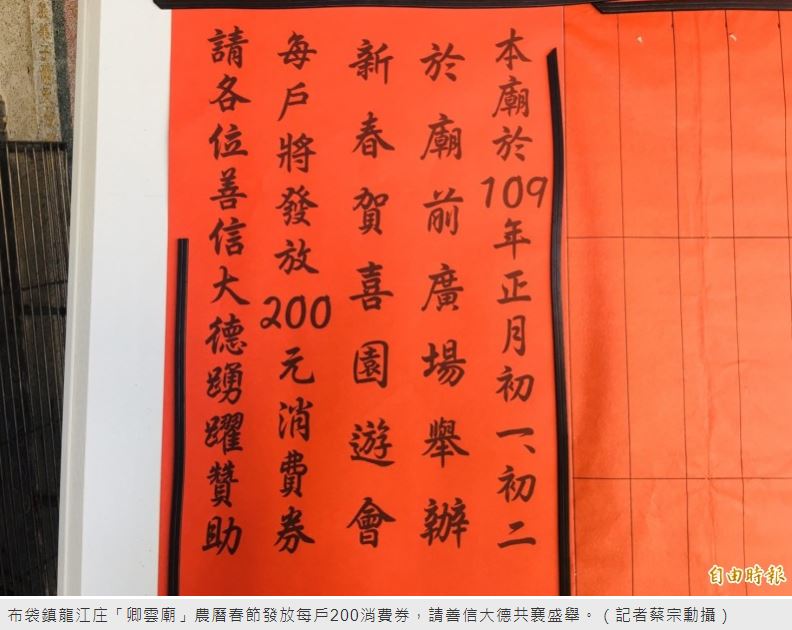 本廟於109年正月初一、初二
於廟前廣場舉辦
新春賀喜園遊會
每戶將發放200元消費券
請各位善信大德踴躍贊助
自由時報
布袋鎮龍江庄「卿雲廟」農曆春節發放每戶200消費券，請善信大德共襄盛舉。（記者蔡宗勳攝）